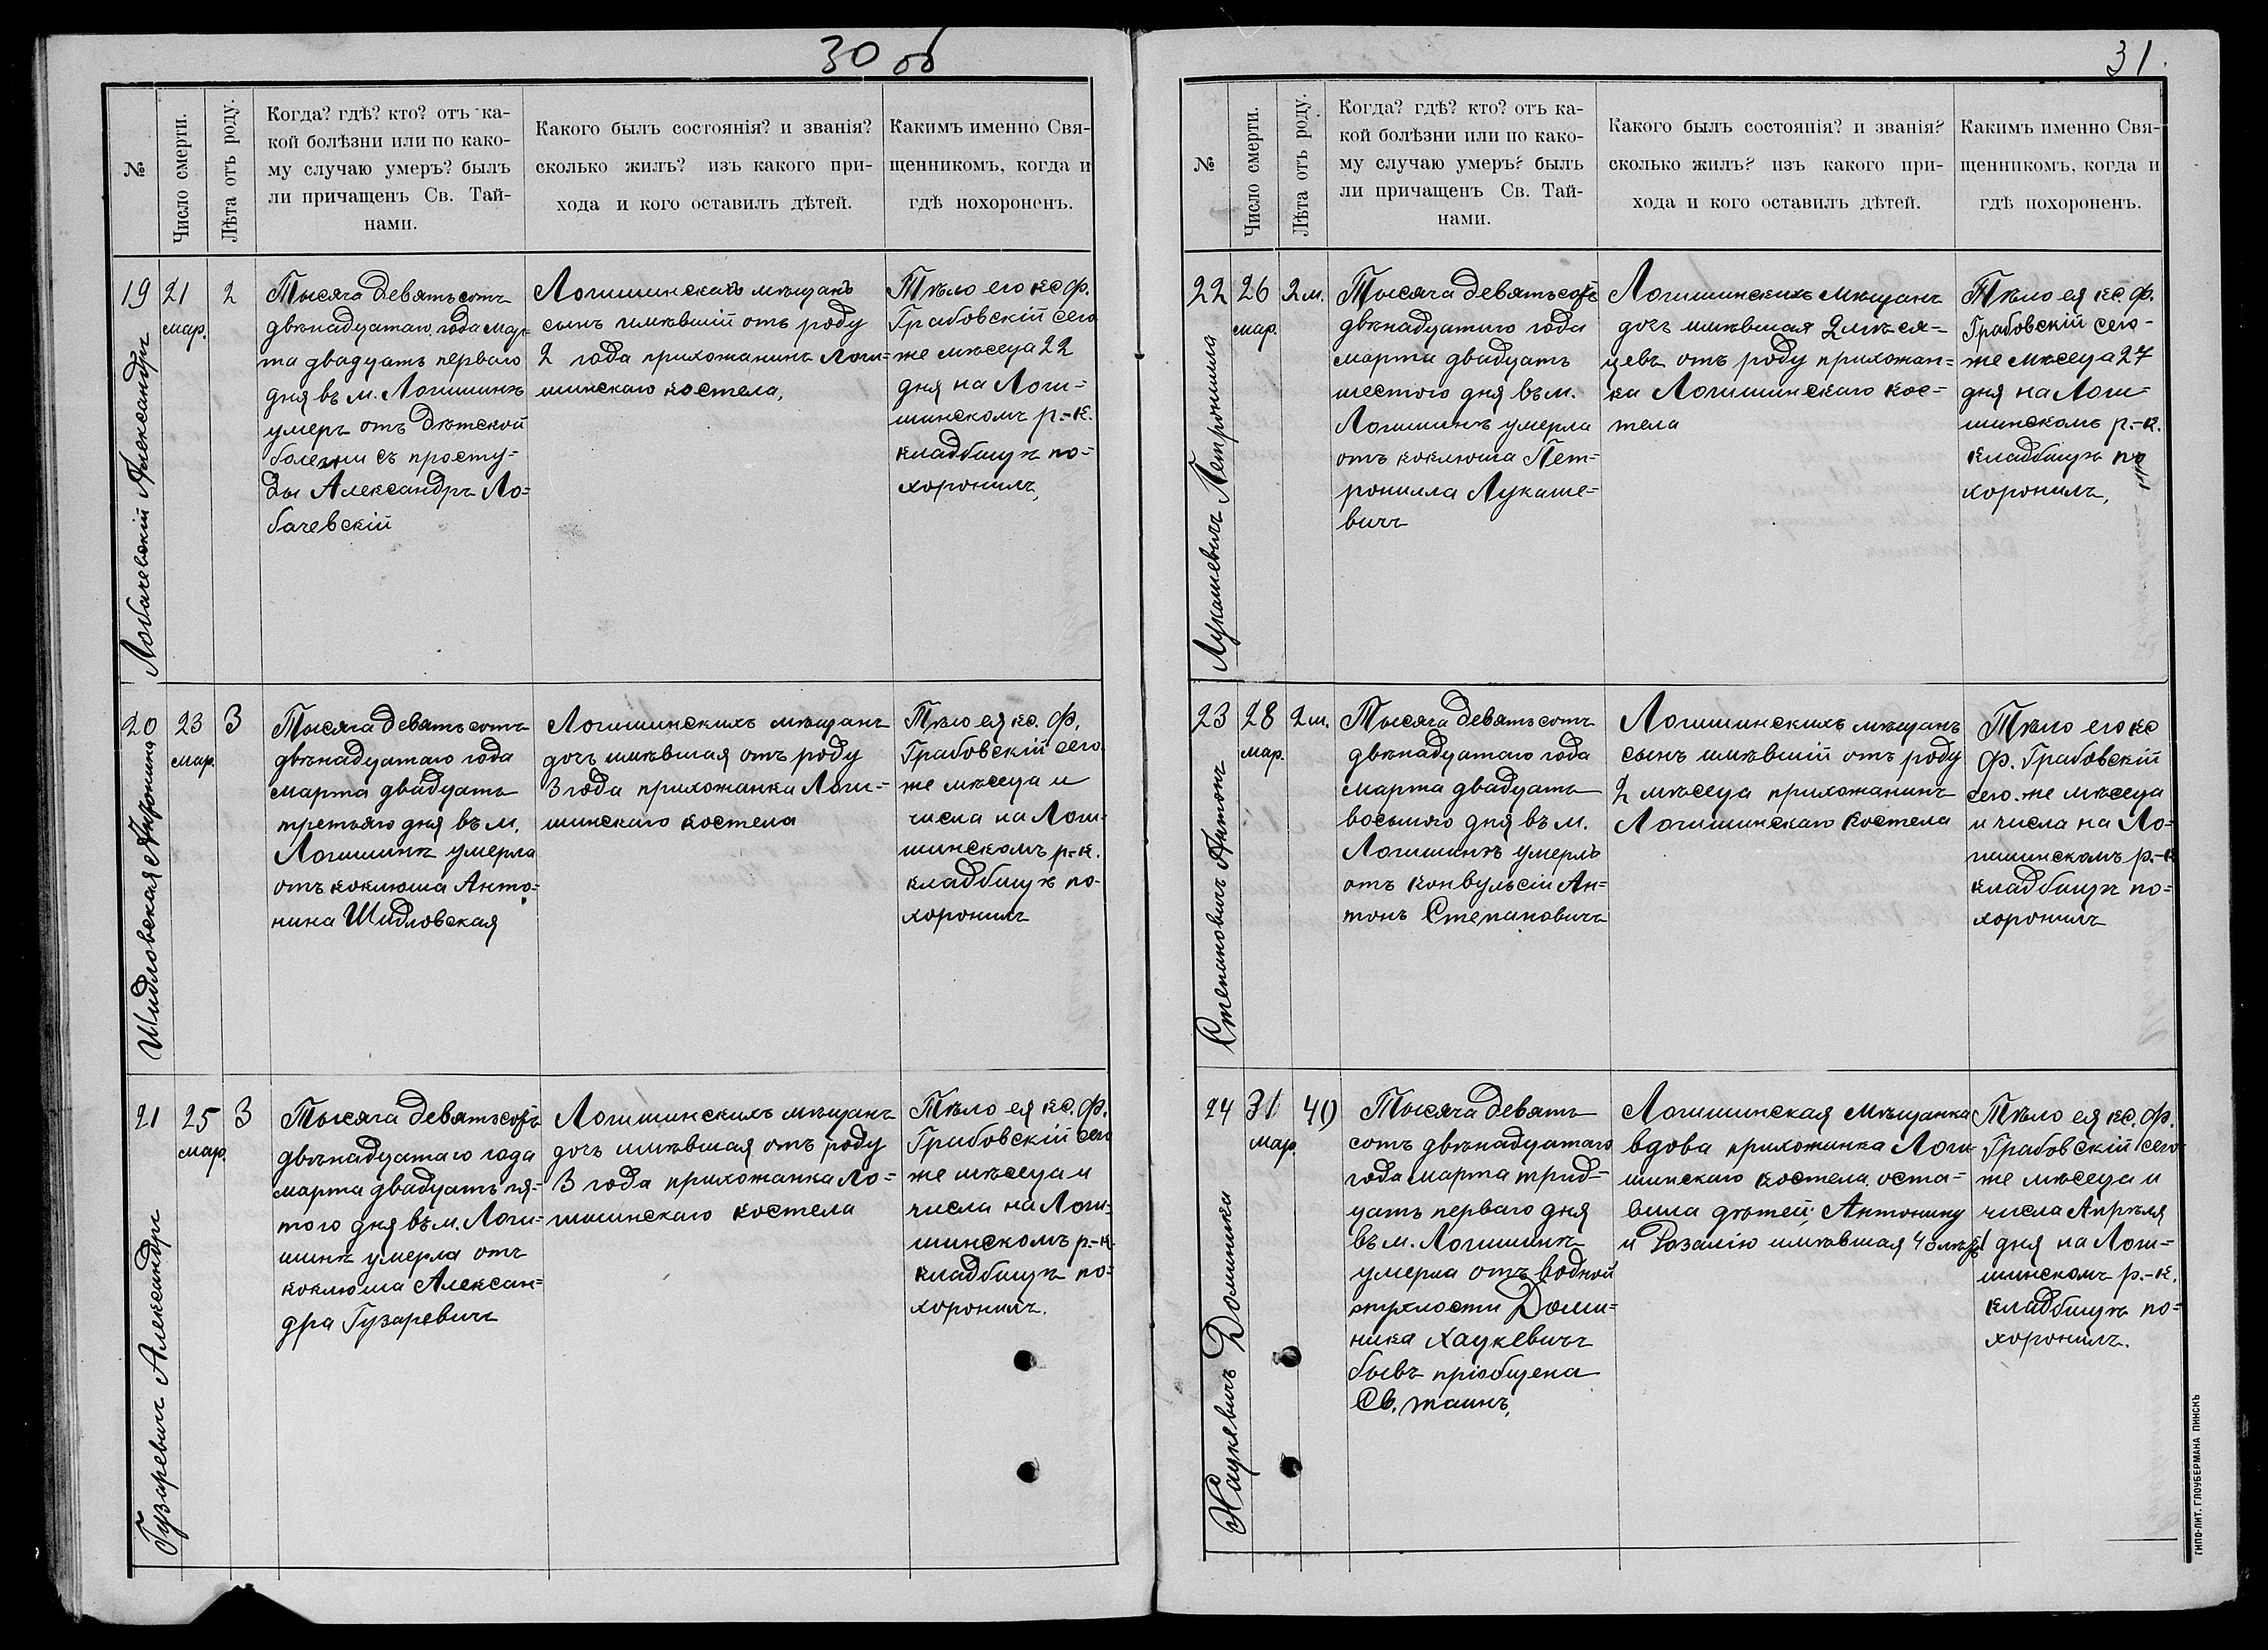 30 об
№
Число смерти.
Лѣта отъ роду.
Когда? гдѣ? кто? отъ ка-
кой болѣзни или по како-
му случаю умеръ? былъ
ли причащенъ Св. Тай-
нами.
Какого былъ состоянія? и званія?
сколько жилъ? изъ какого при-
хода и кого оставилъ дѣтей.
Какимъ именно Свя-
щенникомъ, когда и
гдѣ похороненъ.
19
Лобачевскій Александръ
21
мар.
2
Тысяча девятьсотъ
двѣнадцатаго года мар-
та двадцать перваго
дня въ м. Логишинѣ
умеръ отъ дѣтской
болезни съ просту-
ды Александръ Ло-
бачевскій
Логишинскихъ мѣщанъ
сынъ имѣвшій отъ роду
2 года прихожанинъ Логи-
шинскаго костела,
Тѣло его кс. Ф.
Грабовскій сего
же мѣсеца 22
дня на Логи-
шинскомъ р.-к.
кладбищѣ по-
хоронилъ,
20
Шидловская Антонина
23
мар.
3
Тысяча девятьсотъ
двѣнадцатаго года
марта двадцать
третьяго дня въ м.
Логишинѣ умерла
отъ коклюша Анто-
нина Шидловская
Логишинскихъ мѣщанъ
дочъ имѣвшая отъ роду
3 года прихожанка Логи-
шинскаго костела
Тѣло ея кс. Ф.
Грабовскій сего
же мѣсеца и
числа на Логи-
шинскомъ р.-к.
кладбищѣ по-
хоронилъ
21
Гузаревичъ Александра
25
мар.
3
Тысяча девятьсотъ
двѣнадцатаго года
марта двадцать пя-
того дня въ м. Логи-
шинѣ умерла отъ
коклюша Алексан-
дра Гузаревичъ
Логишинскихъ мѣщанъ
дочъ имѣвшая отъ роду
3 года прихожанка Ло-
гишинскаго костела
Тѣло ея кс. Ф.
Грабовскій сего
же мѣсеца и
числа на Логи-
шинскомъ р.-к.
кладбищѣ по-
хоронилъ.
31
№
Число смерти.
Лѣта отъ роду.
Когда? гдѣ? кто? отъ ка-
кой болѣзни или по како-
му случаю умеръ? былъ
ли причащенъ Св. Тай-
нами.
Какого былъ состоянія? и званія?
сколько жилъ? изъ какого при-
хода и кого оставилъ дѣтей.
Какимъ именно Свя-
щенникомъ, когда и
гдѣ похороненъ.
22
Лукашевичъ Петронилла
26
мар.
2 м.
Тысяча девятьсотъ
двѣнадцатаго года
марта двадцать
шестого дня въ м.
Логишинѣ умерла
отъ коклюша Пет-
ронилла Лукаше-
вичъ
Логишинскихъ мѣщанъ
дочъ имѣвшая 2 мѣся-
цевъ отъ роду прихожан-
ка Логишинскаго кос-
тела
Тѣло ея кс. Ф.
Грабовскій сего-
же мѣсеца 27
дня на Логи-
шинскомъ р.-к.
кладбищѣ по
хоронилъ,
23
Степановичъ Антонъ
28
мар.
2 м.
Тысяча девятьсотъ
двѣнадцатаго года
марта двадцать
восьмого дня въ м.
Логишинѣ умерлъ
отъ конвульсіи Ан-
тонъ Степановичъ
Логишинскихъ мѣщанъ
сынъ имѣвшій отъ роду
2 мѣсеца прихожанинъ
Логишинскаго костела
Тѣло его кс
Ф. Грабовскій
сего-же мѣсеца
и числа на Ло-
гишинскомъ р.-к
кладбищѣ по-
хоронилъ
24
Хацкевичъ Доминика
31
мар.
40
Тысяча девять
сотъ двѣнадцатаго
года марта трид-
цать перваго дня
въ м. Логишинѣ
умерла отъ водной
опухлости Доми-
ника Хацкевичъ
бывъ пріобщена
Св. таинъ,
Логишинская мѣщанка
вдова прихожанка Логи-
шинскаго костела оста-
вила дѣтей; Антонину
и Розалію имѣвшая 40 лѣтъ
Тѣло ея кс. Ф.
Грабовскій сего
же мѣсеца и
числа Апрѣля
1 дня на Логи-
шинскомъ р.-к.
кладбищѣ по-
хоронилъ.
ТИПО-ЛИТ. ГЛОУБЕРМАНА ПИНСКЪ